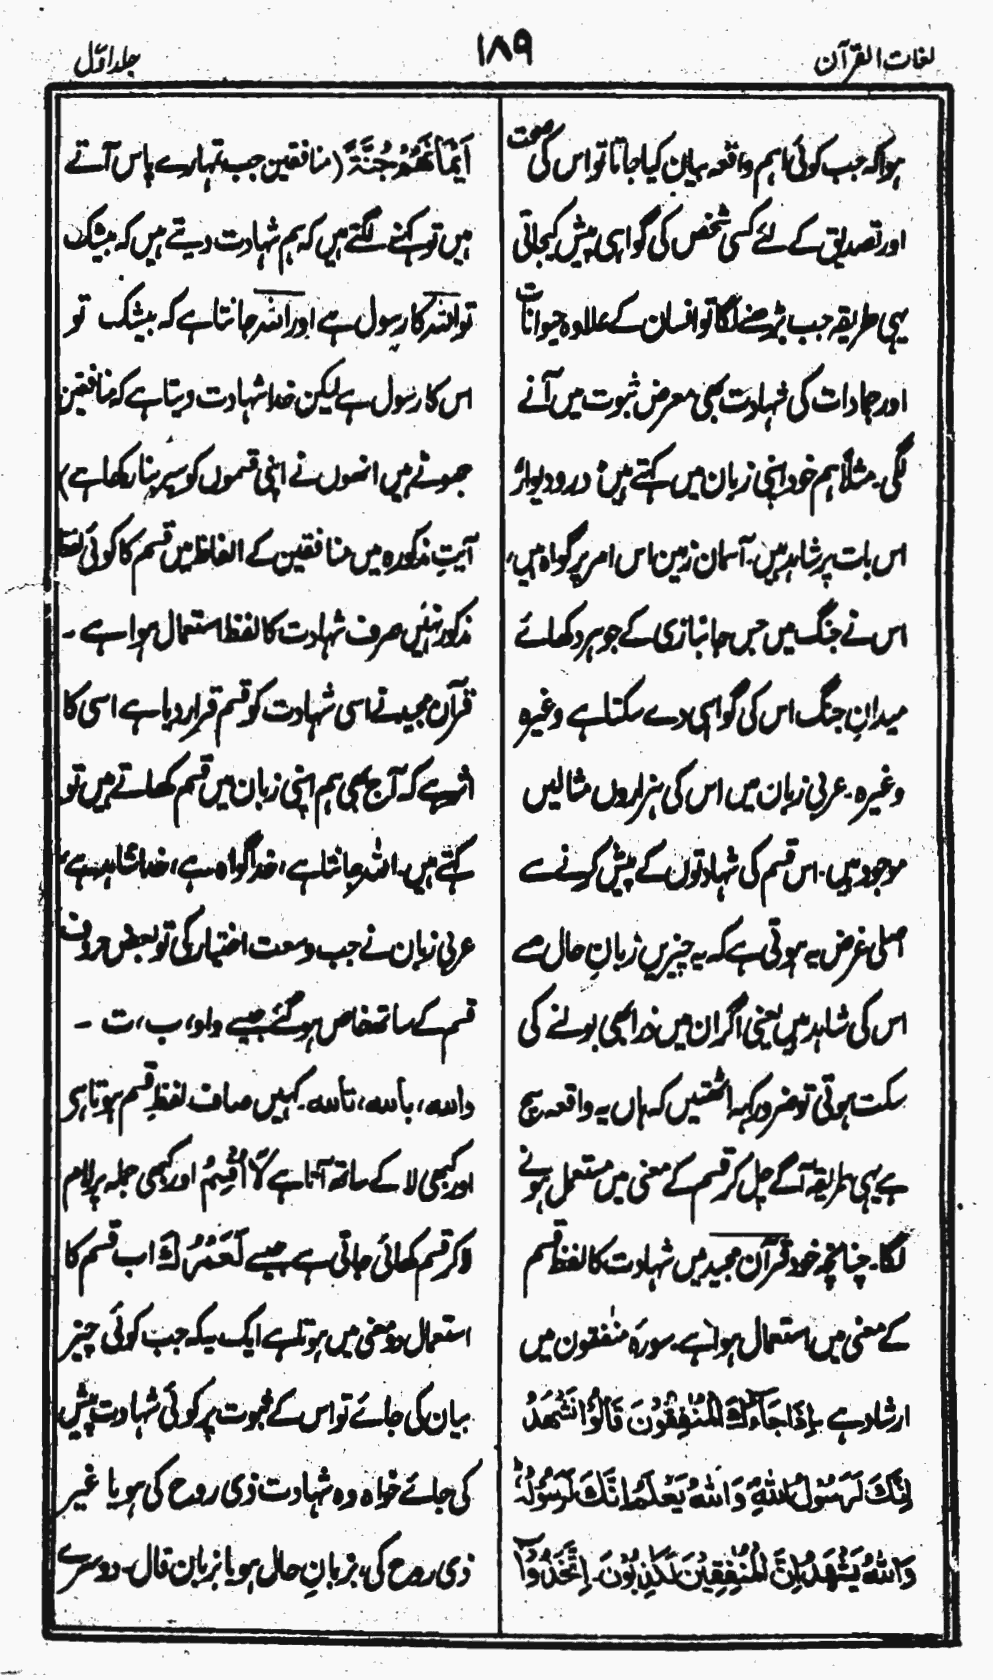 لغات القرآن
۱۸۹
جلد اوّل
ہوا کہ جب کوئی اہم واقعہ بیان کیا جاتا تو اس کی صوت
اور تصدیق کے لئے کسی شخص کی گواہی پیش کیجاتی
یہی طریقہ جب بڑھنے لگا تو انسان کے علاوہ حیوانات
اور جمادات کی شہادت بھی معرض ثبوت میں آنے
لگی۔ مثلاً ہم خود اپنی زبان میں کہتے ہیں درودیوار
اس بات پر شاہد ہیں۔ آسمان زمین اس امر پر گواہ ہیں،
اس نے جنگ میں جس جانبازی کے جوہر دکھائے
میدانِ جنگ اس کی گواہی دے سکتا ہے وغیرہ
وغیرہ۔ عربی زبان میں اس کی ہزاروں مثالیں
موجود ہیں۔ اس قسم کی شہادتوں کے پیش کرنے سے
اصلی غرض یہ ہوتی ہے کہ یہ چیزیں زبانِ حال سے
اس کی شاہد ہیں یعنی اگر ان میں ذرا بھی بولنے کی
سکت ہوتی تو ضرور کہہ اٹھتیں کہ ہاں یہ واقعہ سچ
ہے یہی طریقہ آگے چل کر قسم کے معنی میں مستعمل ہونے
لگا۔ چنانچہ خود قرآن مجید میں شہادت کا لفظ قسم
کے معنی میں استعمال ہوا ہے۔ سورہ منٰفقون میں
ارشاد ہے۔ اِذَا جَآءَكَ الْمُنٰفِقُوْنَ قَالُوْا نَشْهَدُ
اِنَّكَ لَرَسُوْلُ اللّٰهِ وَاللّٰهُ يَعْلَمُ اِنَّكَ لَرَسُوْلُهٗ
وَاللّٰهُ يَشْهَدُ اِنَّ الْمُنٰفِقِيْنَ لَكٰذِبُوْنَ۔ اِتَّخَذُوْٓا
اَيْمَانَهُمْ جُنَّةً (منافقین جب تمہارے پاس آتے
ہیں تو کہنے لگتے ہیں کہ ہم شہادت دیتے ہیں کہ بیشک
تو اللہ کا رسول ہے اور اللہ جانتا ہے کہ بیشک تو
اس کا رسول ہے لیکن خدا شہادت دیتا ہے کہ منافقین
جھوٹے ہیں انھوں نے اپنی قسموں کو سپر بنا رکھا ہے)
آیتِ مذکورہ میں منافقین کے الفاظ میں قسم کا کوئی لفظ
مذکور نہیں صرف شہادت کا لفظ استعمال ہوا ہے ۔
قرآن مجید نے اسی شہادت کو قسم قرار دیا ہے اسی کا
اثر ہے کہ آج بھی ہم اپنی زبان میں قسم کھاتے ہیں تو
کہتے ہیں۔ اللہ جانتا ہے، خدا گواہ ہے، خدا شاہد ہے،
عربی زبان نے جب وسعت اختیار کی تو بعض حروف
قسم کے ساتھ خاص ہو گئے جیسے واو، ب، ت ۔
واللہ، باللہ، تاللہ۔ کہیں صاف لفظِ قسم ہوتا ہی
اور کبھی لا کے ساتھ آتا ہے لَآ اُقْسِمُ اور کبھی جملہ پر لام
لا کر قسم کھائی جاتی ہے جیسے لَعَمْرُكَ اب قسم کا
استعمال دو معنی میں ہوتا ہے ایک یہ کہ جب کوئی چیز
بیان کی جائے تو اس کے ثبوت پر کوئی شہادت پیش
کی جائے خواہ وہ شہادت ذی روح کی ہو یا غیر
ذی روح کی، بزبانِ حال ہو یا بزبان قال۔ دوسرے